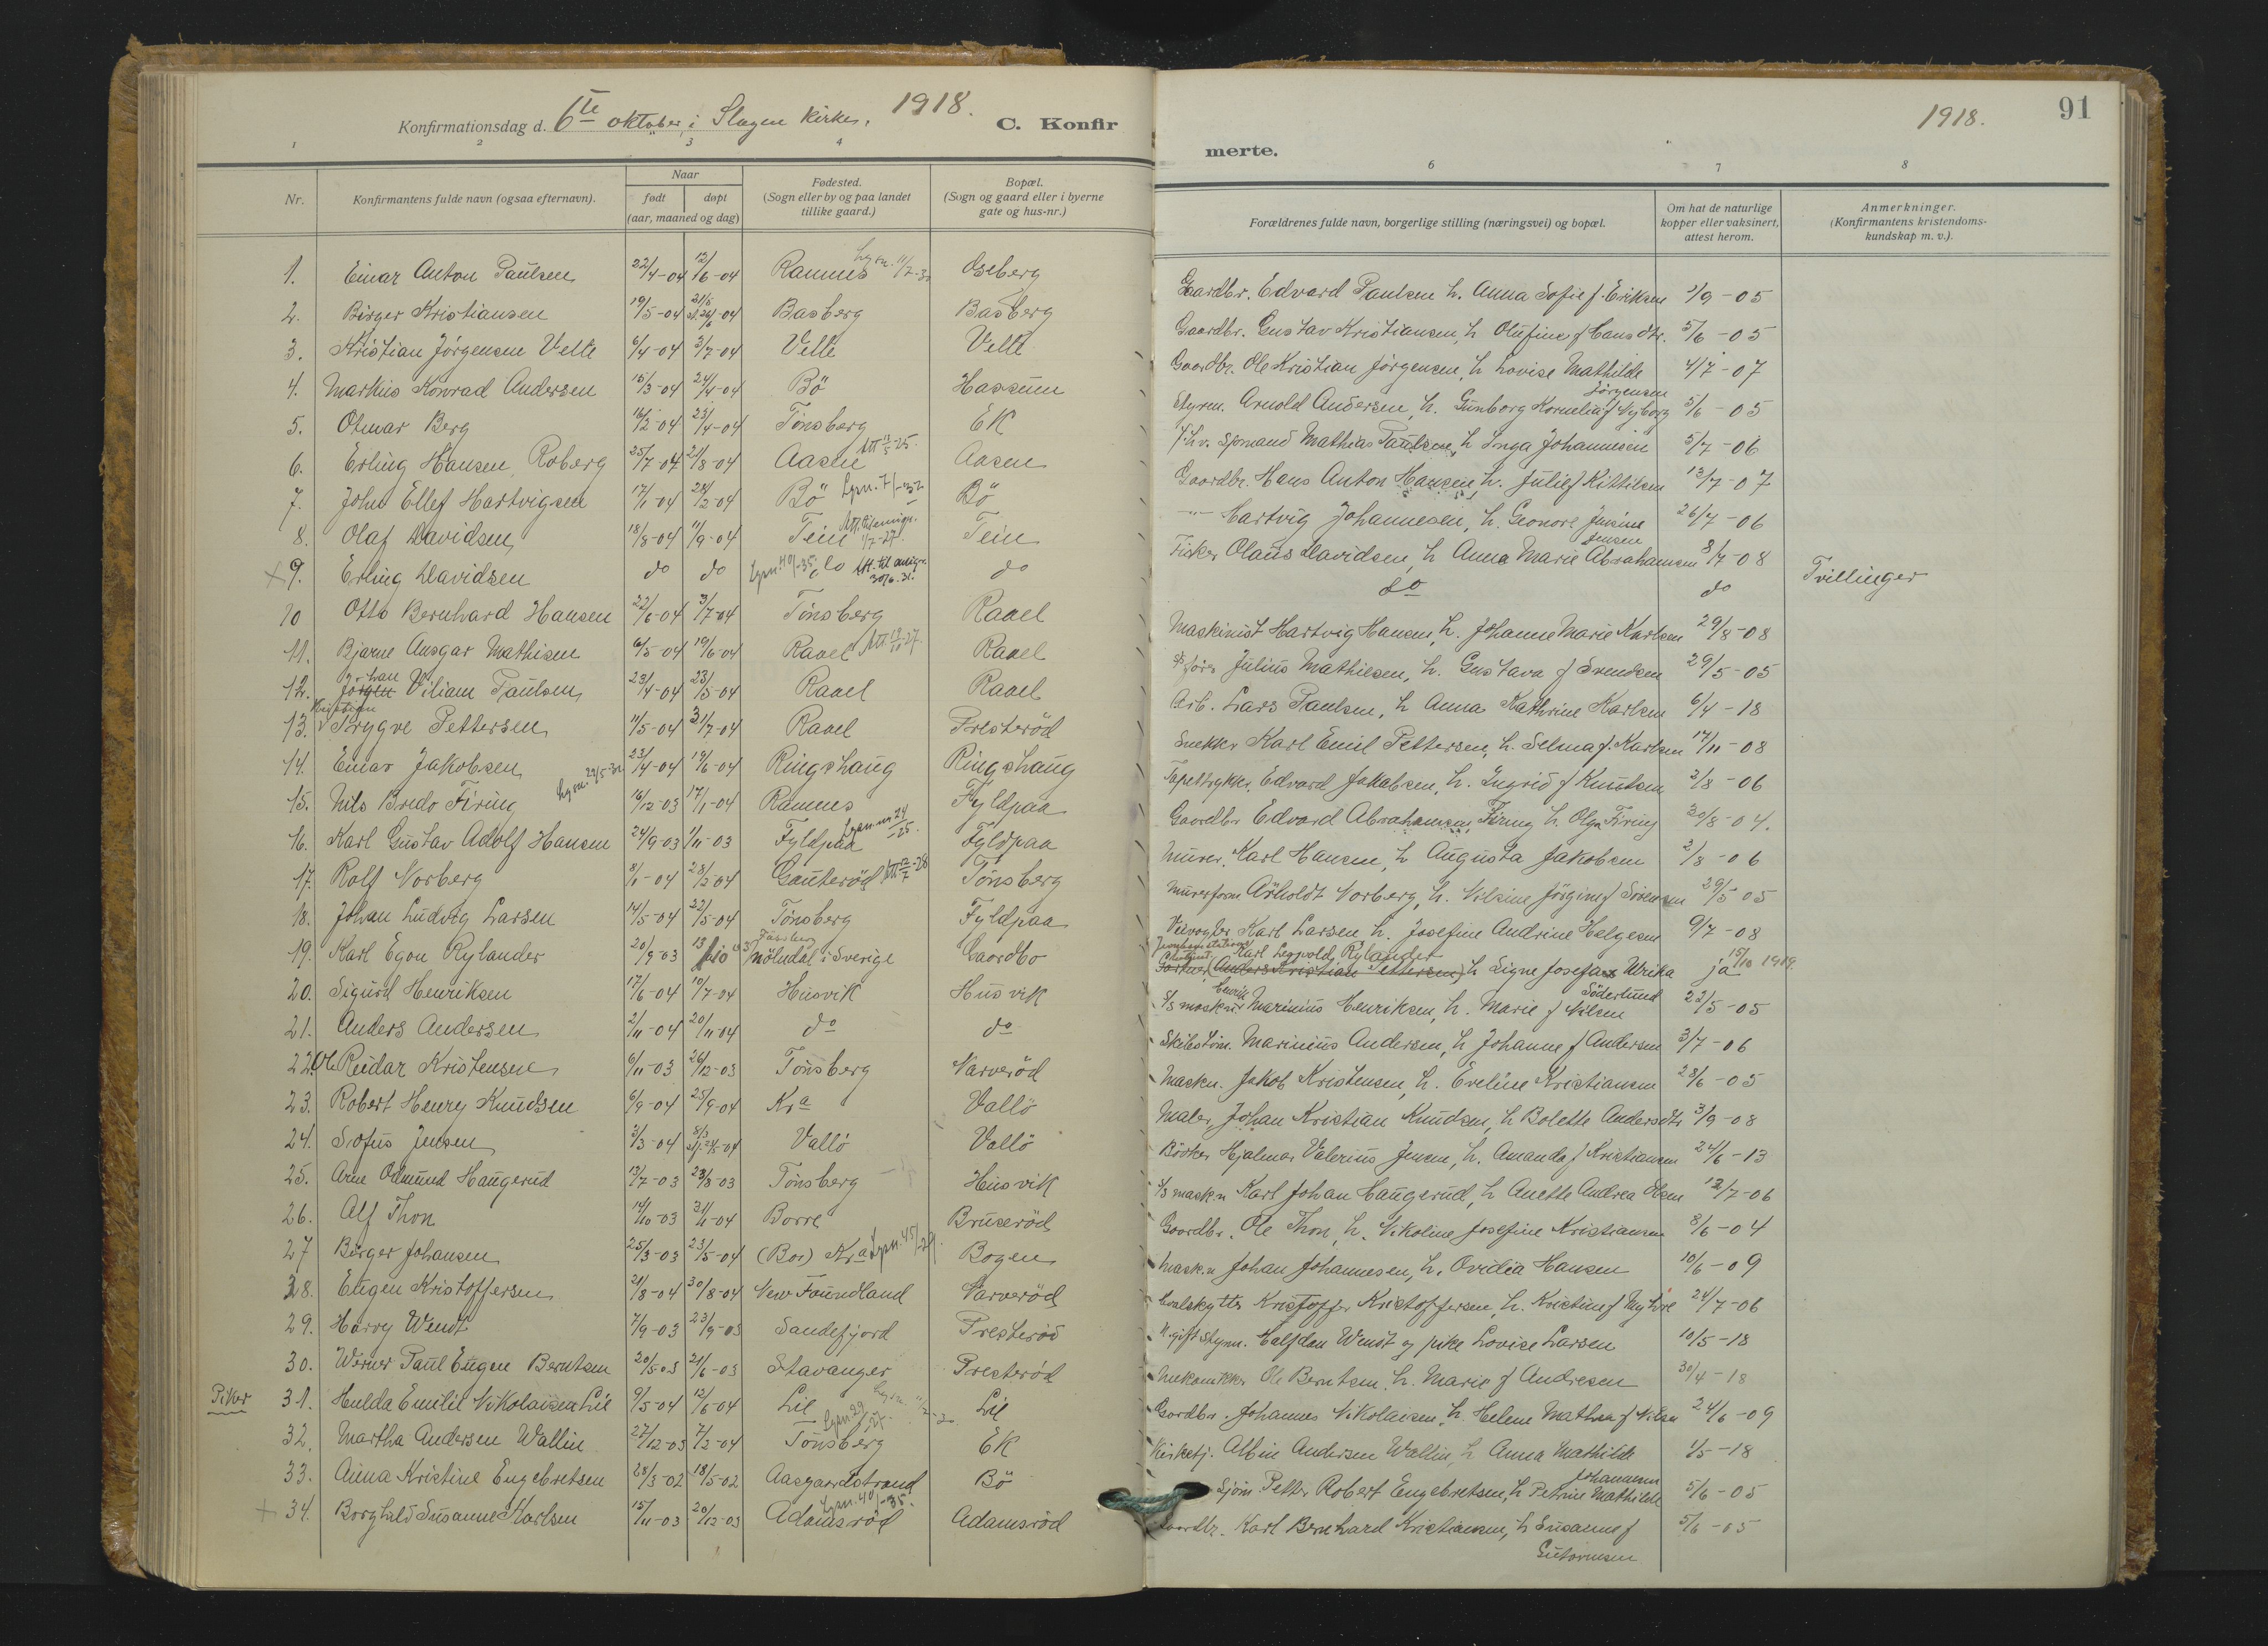 Konfirmationsdag d. 6te oktober i Slagen Kirke. 1918. C. Konfir
1 2 3 4
Nr. Konfirmantens fulde navn (ogsaa efternavn). Naar født døpt (aar, maaned og dag) Fødested. (Sogn eller by og paa landet tillike gaard.) Bopæl. (Sogn og gaard eller i byerne gate og hus-nr.)
1. Einar Anton Paulsen 22/4-04 12/6-04 Ramnes Oseberg
2. Birger Kristiansen 19/5-04 Basberg Basberg
3. Kristian Jörgensen Velle 6/4-04 3/7-04 Velle Velle
4. Markus Konrad Andersen 15/3-04 24/4-04 Bö Hassum
5. Otmar Berg 16/2-04 23/4-04 Tönsberg EK
6. Erling Hansen Roberg 25/7-04 21/8-04 Aasen Aasen
7. John Ellef Hartvigsen 17/1-04 28/2-04 Bö Bö
8. Olaf Davidsen 18/8-04 11/9-04 Tein Tein
9. Erling Davidsen do do do do
10 Otto Bernhard Hansen 22/6-04 3/7-04 Tönsberg Raael
11. Bjarne Ansgar Mathisen 6/5-04 19/6-04 Raael Raael
12. Johan Viliam Paulsen 23/4-04 23/5-04 Raael Raael
13. Kristian Trygve Pettersen 11/5-04 31/7-04 Raael Presteröd
14. Einar Jakobsen 23/4-04 19/6-04 Ringshaug Ringshaug
15. Nils Bredo Firing 16/12-03 17/1-04 Ramnes Fyldpaa
16. Karl Gustav Adolf Hansen 24/9-03 1/11-03 Fyldpaa Fyldpaa
17. Rolf Norberg 8/1-04 28/2-04 Gauteröd Tönsberg
18. Johan Ludvig Larsen 14/5-04 22/5-04 Tönsberg Fyldpaa
19. Karl Egon Rylander 20/9-03 Mölndal i Sverige Caordbo
20. Sigurd Henriksen 17/6-04 10/7-04 Husvik Husvik
21. Anders Andersen 2/11-04 20/11-04 do do
22. Ole Reidar Kristensen 6/11-03 26/12-03 Tönsberg Narveröd
23. Robert Henry Knudsen 6/9-04 25/9-04 Kra Vallö
24. Sofus Jensen 3/3-04 Vallö Vallö
25. Arne Odmund Haugerud 13/7-03 23/8-03 Tönsberg Husvik
26. Alf Thon 19/10-03 31/1-04 Borre Bruseröd
27 Birger Johansen 25/3-03 23/5-04 (Bos) Kra Bogen
28. Eugen Kristoffersen 21/8-04 30/8-04 New Foundland Narveröd
29. Harry Wendt 7/9-03 23/9-03 Sandefjord Presteröd
30. Werner Paul Eugen Berntsen 20/5-03 21/6-03 Stavanger Presteröd
Piker 31. Hulda Emilie Nikolaisen Lie 9/5-04 12/6-04 Lie Lie
32. Martha Andersen Wallin 27/12-03 7/2-04 Tönsberg EK
33. Anna Kristine Engebretsen 28/3-02 18/5-02 Aasgaardstrand Bö
34. Borghild Susanne Karlsen 15/11-03 20/12-03 Adamsröd Adamsröd
merte. 1918. 91
6 7 8
Forældrenes fulde navn, borgerlige stilling (næringsvei) og bopæl. Om hat de naturlige kopper eller vaksinert, attest herom. Anmerkninger. (Konfirmantens kristendoms-kundskap m. v.).
Gaardbr. Edvard Paulsen h. Anna Sofie f. Eriksen 1/9-05
Gaardbr. Gustav Kristiansen, h Olufine f Hansdtr. 5/6-05
Gaardbr. Ole Kristian Jörgensen, h Lovise Mathilde Jörgensen 4/7-07
Styrm. Arnold Andersen, h. Gunborg Kornelia f Nyborg 5/6-05
f.h.v. sjömand Mathias Paulsen, h Inga Johannesen 5/7-06
Gaardbr. Hans Anton Hansen h. Julie f Kittilsen 13/7-07
-"- Hartvig Johannesen, h. Leonore Jensine Jensen 26/7-06
Fisker Olaus Davidsen, h Anna Marie Abrahamsen 8/7-08 Tvillinger
do do
Maskinist Hartvig Hansen, h. Johanne Marie Karlsen 29/8-08
Julius Mathisen, h. Gustava f Svendsen 29/5-05
Arb. Lars Paulsen, h Anna Kathrine Karlsen 6/4-18
Snekker Karl Emil Pettersen, h. Selma f. Karlsen 17/11-08
Tapettrykker Edvard Jakobsen, h. Ingrid f Knutsen 2/8-06
Gaardbr Edvard Abrahamsen Firing h. Olga Firing 30/8-04.
Murer. Karl Hansen, h Augusta Jakobsen 2/8-06
Murerform Arholdt Norberg, h. Nilsine Jörgine f Sörensen 29/5-05
Karl Larsen h. Josefine Andrine Helgesen 9/7-08
Karl Leopold Rylander
Gartner (Anders Kristian Pettersen) h Signe Josefa Ulrika Söderlund ja 15/10 1919.
S/s mask.m Henrik Marinius Henriksen, h. Marie f Nilsen 22/5-05
Skibstöm. Marinius Andersen, h Johanne f Andersen 3/7-06
Maskn. Jakob Kristensen, h. Eveline Kristiansen 28/6-05
Maler, Johan Kristian Knudsen, h Bolette Andersdtr 3/9-08
Bödker Hjalmar Valerius Jensen, h. Amanda f Kristiansen 24/6-13
S/s mask.n Karl Johan Haugerud, h Anette Andrea Olsen 12/7-06
Gaardbr. Ole Thon, h. Nikoline Josefine Kristiansen 8/6-04
Mask.n Johan Johannesen, h. Ovidia Hansen 10/6-09
Hvalskytter Kristoffer Kristoffersen, h. Kristine f Myhre 24/7-06
U.gift Styrm. Halfdan Wendt og pike Lovise Larsen 10/5-18
Ole Berntsen. h. Marie f Andresen 30/4-18
Gaardbr. Johannes Nikolaisen, h. Helene Mathea f Nilsen 24/6-09
Kirketj. Albin Andersen Wallin, h Anna Mathilde Johannesen 1/5-18
Sjöm. Petter Robert Engebretsen, h Petrine Mathilde 5/6-05
Gaardbr. Karl Bernhard Kristiansen, h Susanne f Gutormsen 5/6-05